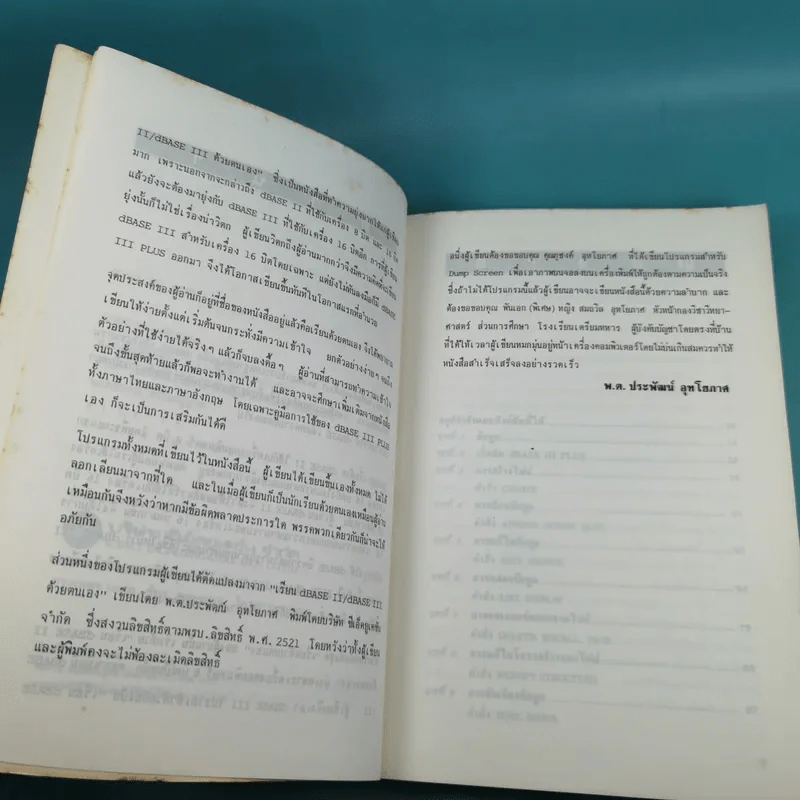 II/dBASE III ด้วยตนเอง" ซึ่งเป็นหนังสือที่ทำความยุ่งยากให้แก่ผู้เขียน
มาก เพราะนอกจากจะกล่าวถึง dBASE II ที่ใช้กับเครื่อง 8 บิต และ 16 บิต
แล้วยังจะต้องมายุ่งกับ dBASE III ที่ใช้กับเครื่อง 16 บิตอีก การที่ผู้เขียน
ยุ่งนั้นก็ไม่ใช่เรื่องน่าวิตก ผู้เขียนวิตกถึงผู้อ่านมากกว่าจึงมีความคิดที่จะเขียน
dBASE III สำหรับเครื่อง 16 บิตโดยเฉพาะ แต่ยังไม่ทันลงมือก็มี dBASE
III PLUS ออกมา จึงได้โอกาสเขียนขึ้นทันทีในโอกาสแรกที่อำนวย
จุดประสงค์ของผู้อ่านก็อยู่ที่ชื่อของหนังสืออยู่แล้วคือเรียนด้วยตนเอง จึงได้พยายาม
เขียนให้ง่ายตั้งแต่เริ่มต้นจนกระทั่งมีความเข้าใจ ยกตัวอย่างง่ายๆ จนถึง
ตัวอย่างที่ใช้ง่ายได้จริงๆ แล้วก็จบลงดื้อๆ ผู้อ่านที่สามารถทำความเข้าใจ
จนถึงขั้นสุดท้ายแล้วก็พอจะทำงานได้ และอาจจะศึกษาเพิ่มเติมจากหนังสือ
ทั้งภาษาไทยและภาษาอังกฤษ โดยเฉพาะคู่มือการใช้ของ dBASE III PLUS
เอง ก็จะเป็นการเสริมกันได้ดี
โปรแกรมทั้งหมดที่เขียนไว้ในหนังสือนี้ ผู้เขียนได้เขียนขึ้นเองทั้งหมด ไม่ได้
ลอกเลียนมาจากที่ใด และในเมื่อผู้เขียนก็เป็นนักเรียนด้วยตนเองเหมือนผู้อ่าน
เหมือนกันจึงหวังว่าหากมีข้อผิดพลาดประการใด พรรคพวกเดียวกันก็น่าจะให้
อภัยกัน
ส่วนหนึ่งของโปรแกรมผู้เขียนได้ดัดแปลงมาจาก "เรียน dBASE II/dBASE III
ด้วยตนเอง" เขียนโดย พ.ต.ประพัฒน์ อุทโยภาศ พิมพ์โดยบริษัท ซีเอ็ดยูเคชั่น
จำกัด ซึ่งสงวนลิขสิทธิ์ตามพรบ.ลิขสิทธิ์ พ.ศ. 2521 โดยหวังว่าทั้งผู้เขียน
และผู้พิมพ์คงจะไม่ฟ้องละเมิดลิขสิทธิ์
อนึ่งผู้เขียนต้องขอขอบคุณ คุณภุชงค์ อุทโยภาศ ที่ได้เขียนโปรแกรมสำหรับ
Dump Screen เพื่อเอาภาพบนจอลงบนเครื่องพิมพ์ให้ถูกต้องตามความเป็นจริง
ซึ่งถ้าไม่ได้โปรแกรมนี้แล้วผู้เขียนอาจจะเขียนหนังสือนี้ด้วยความลำบาก และ
ต้องขอขอบคุณ พันเอก (พิเศษ) หญิง สมถวิล อุทโยภาศ หัวหน้ากองวิชาวิทยา-
ศาสตร์ ส่วนการศึกษา โรงเรียนเตรียมทหาร ผู้บังคับบัญชาโดยตรงที่บ้าน
ที่ได้ให้เวลาผู้เขียนหมกมุ่นอยู่หน้าเครื่องคอมพิวเตอร์โดยไม่บ่นเกินสมควรทำให้
หนังสือสำเร็จเสร็จลงอย่างรวดเร็ว
พ.ต. ประพัฒน์ อุทโยภาศ